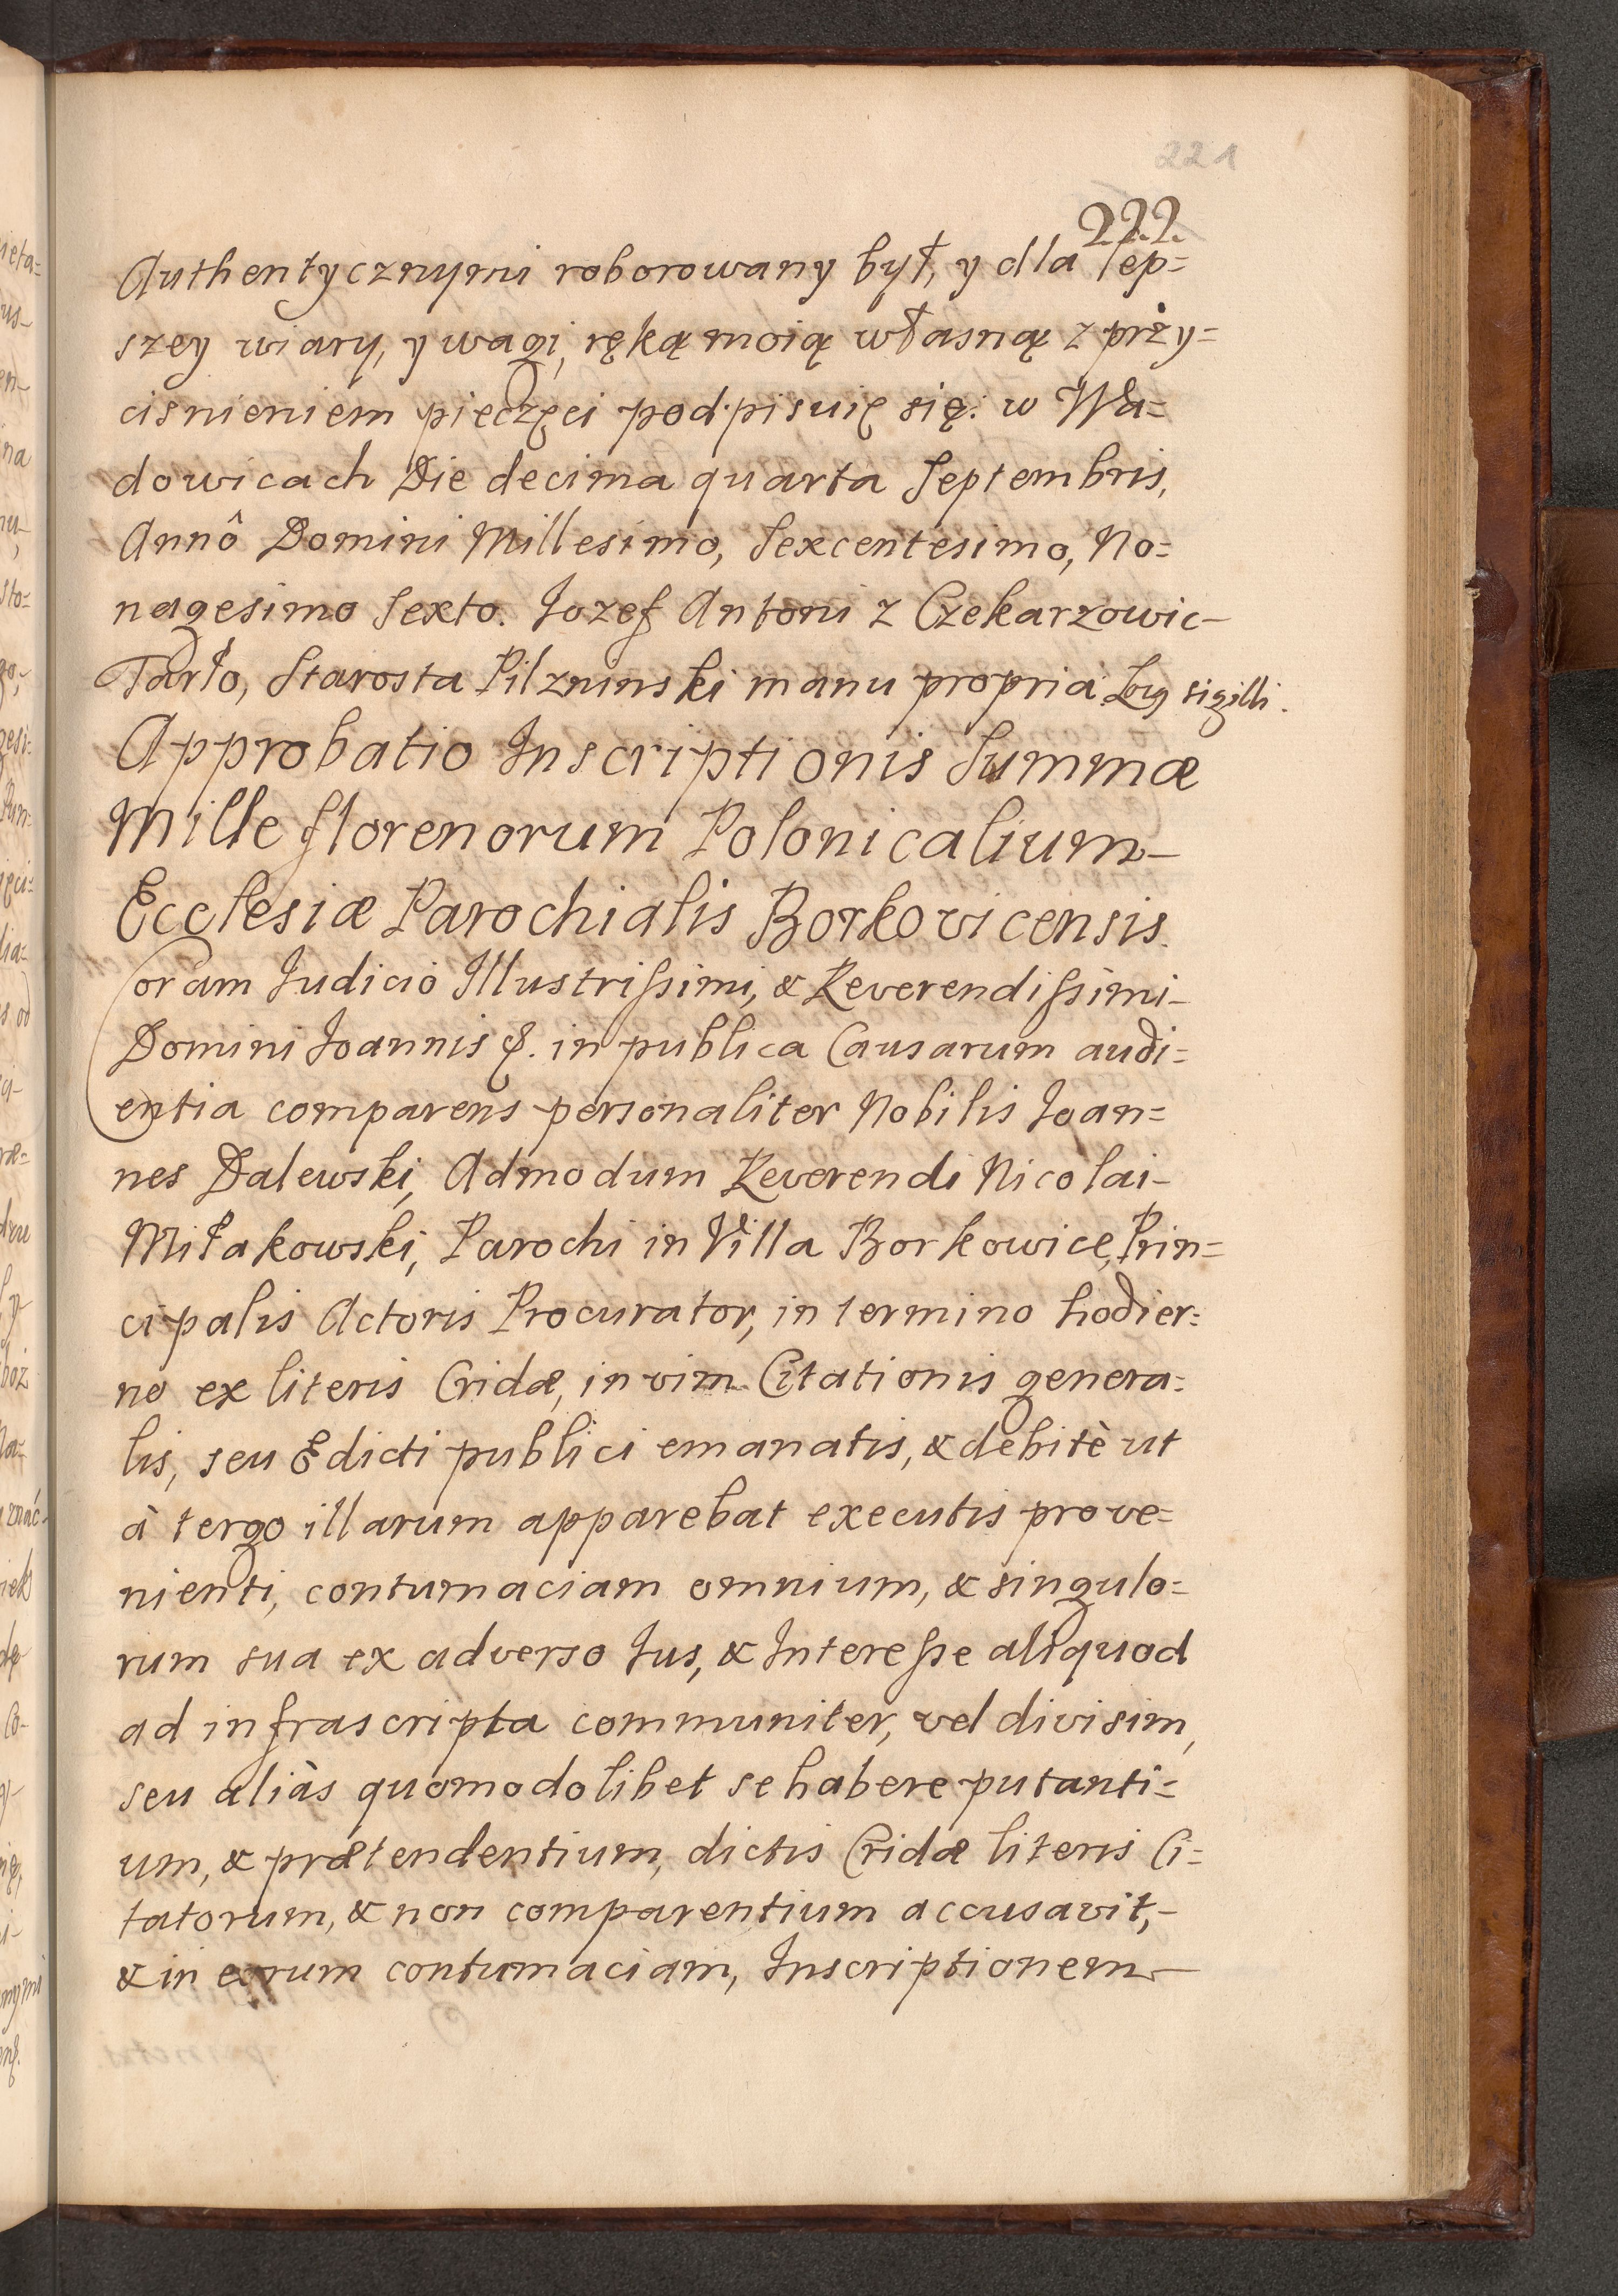 221
222.
Authentycznymi roborowany był, y dla lep=
szey wiary, y wagi, ręką moią własną z przy=
cisnieniem pieczęci podpisuię się: w Wła=
dowicach Die decima quarta Septembris,
Annô Domini Millesimo, Sexcentesimo, No=
nagesimo Sexto. Jozef Antoni z Czekarzowic-
Tarło, Starosta Pilznınski manu propria. Locus sigilli.
Approbatio Inscriptionis Summæ
Mille florenorum Polonicalium-
Ecclesiæ Parochialis Borkovicensis.
Coram Judicio Illustrissimi, & Reverendissimi-
Domini Joannis &. in publica Causarum audi=
entia comparens personaliter Nobilis Joan=
nes Dalewski, Admodum Reverendi Nicolai-
Miłakowski, Parochi in Villa Borkowice, Prin=
cipalis Actoris Procurator, in termino hodier=
no ex literis Cridæ, in vim Citationis genera=
lis, seu Edicti publici emanatis, & debitè ut
à tergo illarum apparebat executis prove=
nienti, contumaciam omnium, & singulo=
rum sua ex adverso Jus, & Interesse aliquod
ad infrascripta communiter, vel divisim,
seu aliàs quomodolibet se habere putanti=
um, & prætendentium, dictis Cridæ literis Ci=
tatorum, & non comparentium accusavit,-
& in eorum contumaciam, Inscriptionem-